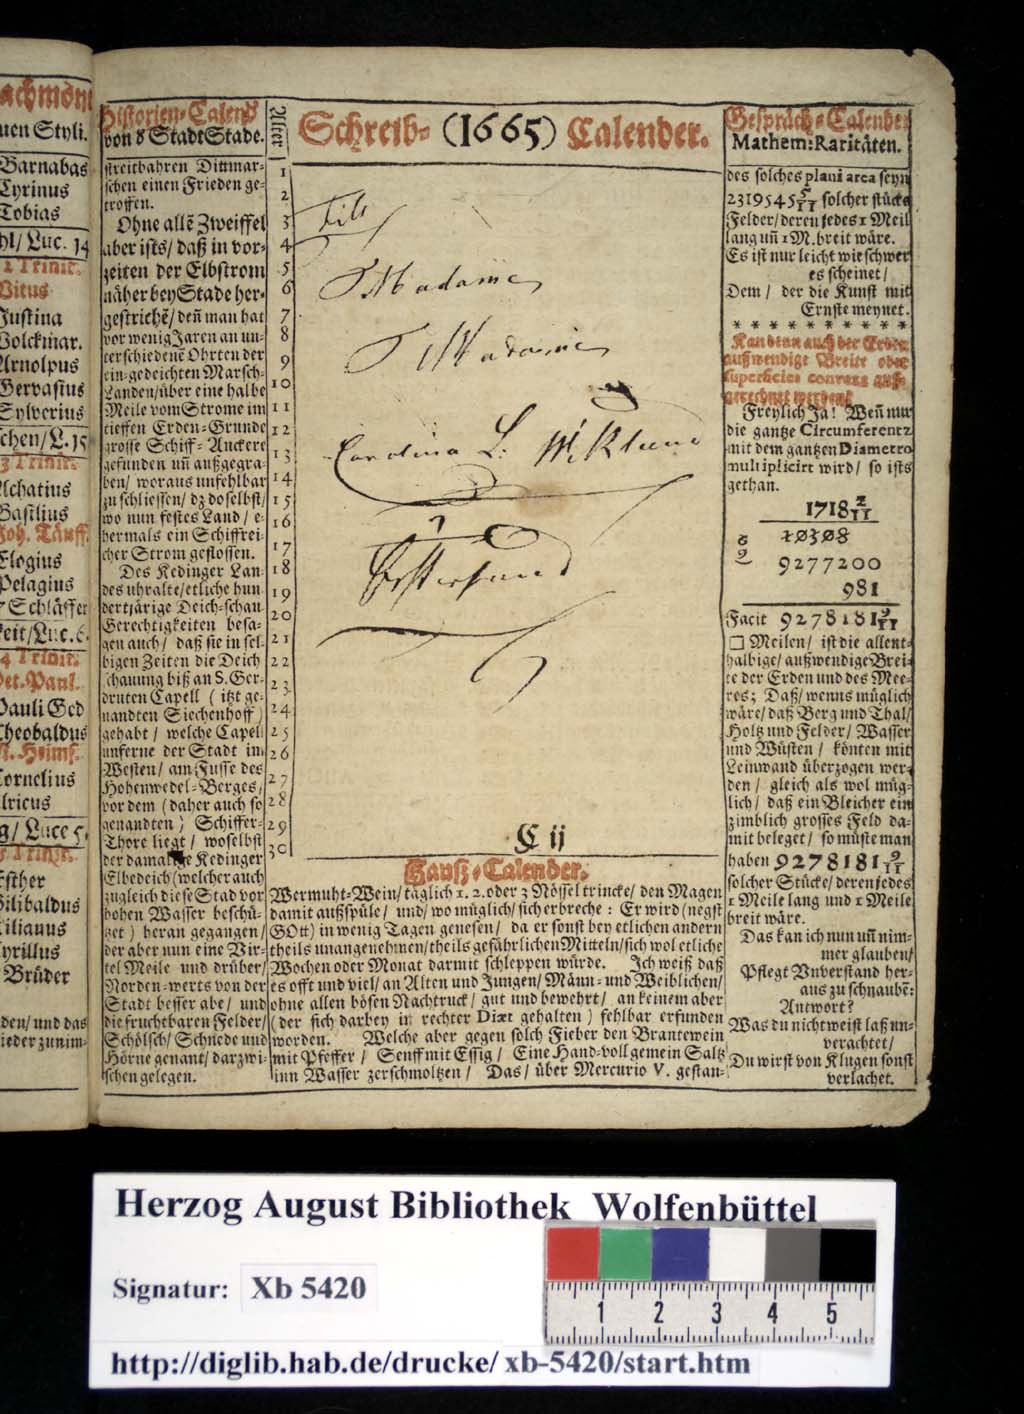 achmont
uen Styli.
Barnabas
Cyrinus
Tobias
hl/ Luc. 14
2 Trinit.
Vitus
Justina
Volckmar.
Arnolpus
Gervasius
Sylverius
chen/ L. 15
3 Trinit.
Achatius
Basilius
Joh. Täuff.
Elogius
Pelagius
7 Schläffer
keit/ Luc. 6.
4 Trinit.
Pet. Paul.
Pauli Ged
Theobaldus
M. Heims.
Cornelius
Ulricus
g/ Luce 5.
5 Trinit.
Esther
Wilibaldus
Kilianus
Cyrillus
7 Brüder
den/ und das
ieder zunim-
Historien-Calend
von d Stadt Stade.
streitbahren Ditmar-
schen einen Frieden ge-
troffen.
Ohne allē Zweiffel
aber ists/ daß in vor-
zeiten der Elbstrom
näher bey Stade her-
gestrichē/ deñ man hat
vor wenig Jaren an un-
terschiedenē Ohrten der
ein-gedeichten Marsch-
Landen/ über eine halbe
Meile vom Strome im
tieffen Erden-Grunde
grosse Schiff-Anckere
gefunden uñ außgegra-
ben/ woraus unfehlbar
zu schliessen/ dz doselbst/
wo nun festes Land/ e-
hermals ein Schiffrei-
cher Strom geflossen.
Des Kedinger Lan-
des uhralte/ etliche hun
dertjärige Deich-schau
Gerechtigkeiten besa-
gen auch/ daß sie in sel-
bigen Zeiten die Deich
schauung biß an S. Ger-
druten Capell ( itzt ge-
nandten Siechenhoff )
gehabt/ welche Capell
unferne der Stadt in
Westen/ am Fusse des
Hohenwedel-Berges,
vor dem ( daher auch so
genandten ) Schiffer-
Thore liegt/ woselbst
der damalige Kedinger
Elbedeich (welcher auch
zugleich diese Stad vor
hohen Wasser beschü-
tzet ) heran gegangen/
der aber nun eine Vir-
tel Meile und drüber/
Norden-werts von der
Stadt besser abe/ und
die fruchtbaren Felder/
Schölsch/ Schnede und
Hörne genant/ darzwi-
schen gelegen.
Alter
1
2
3
4
5
6
7
8
9
10
11
12
13
14
15
16
17
18
19
20
21
22
23
24
25
26
27
28
29
30
Schreib- (1665) Calender.
Till
Madame
Madame
Carolina L.
C ij
Hauß-Calender.
Wermuht-Wein/ täglich 1. 2. oder 3 Nössel trincke/ den Magen
damit außspüle/ und/ wo müglich/ sich erbreche: Er wird (negst
GOtt) in wenig Tagen genesen/ da er sonst bey etlichen andern
theils unangenehmen/ theils gefährlichen Mitteln/ sich wol etliche
Wochen oder Monat darmit schleppen würde. Ich weiß daß
es offt und viel/ an Alten und Jungen/ Männ- und Weiblichen/
ohne allen bösen Nachtruck/ gut und bewehrt/ an keinem aber
(der sich darbey in rechter Diæt gehalten) fehlbar erfunden
worden. Welche aber gegen solch Fieber den Brantewein
mit Pfeffer/ Senff mit Essig/ Eine Hand-voll gemein Saltz
inn Wasser zerschmoltzen/ Das/ über Mercurio V. gestan-
Gespräch-Calende
Mathem: Raritäten.
des solches plani area seyn
2319545 5/11 solcher stücke
Felder/ deren jedes 1 Meil
lang uñ 1 M. breit wäre.
Es ist nur leicht wie schwer
es scheinet/
Dem/ der die Kunst mit
Ernste meynet.
* * * * * * * * * *
Kan denn auch der Erden
außwendige Breite oder
superficies convexa auß-
gerechnet werden?
Freylich Ja! Weñ nur
die gantze Circumferentz
mit dem gantzen Diametro
multiplicirt wird/ so ists
gethan.
1718 2/11
10308
9277200
981
Facit 9278181 9/11
□ Meilen/ ist die allent-
halbige/ außwendige Brei-
te der Erden und des Mee-
res; Daß/ wenns müglich
wäre/ daß Berg und Thal/
Holtz und Felder/ Wasser
und Wüsten/ könten mit
Leinwand überzogen wer-
den/ gleich als wol müg-
lich/ daß ein Bleicher ein
zimblich grosses Feld da-
mit beleget/ so müste man
haben 9278181 9/11
solcher Stücke/ deren jedes
1 Meile lang und 1 Meile
breit wäre.
Das kan ich nun uñ nim-
mer glauben/
Pflegt Vnverstand her-
aus zu schnaubē:
Antwort?
Was du nicht weist laß un-
verachtet/
Du wirst von Klugen sonst
verlachet.
Herzog August Bibliothek Wolfenbüttel
Signatur: Xb 5420
1 2 3 4 5
http://diglib.hab.de/drucke/xb-5420/start.htm